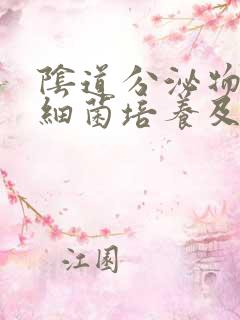 陰道分泌物
細菌培養及
江圆